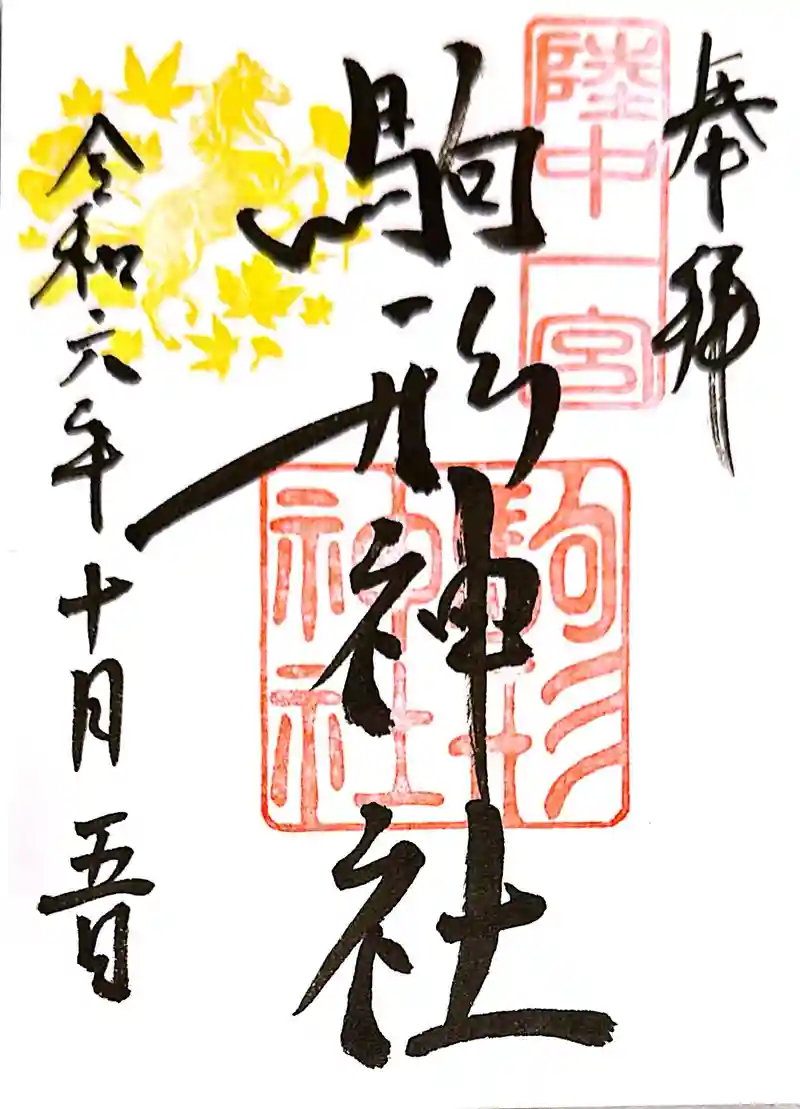 奉拝
陸中一宮
駒形神社
駒形
神社
令和六年十月五日